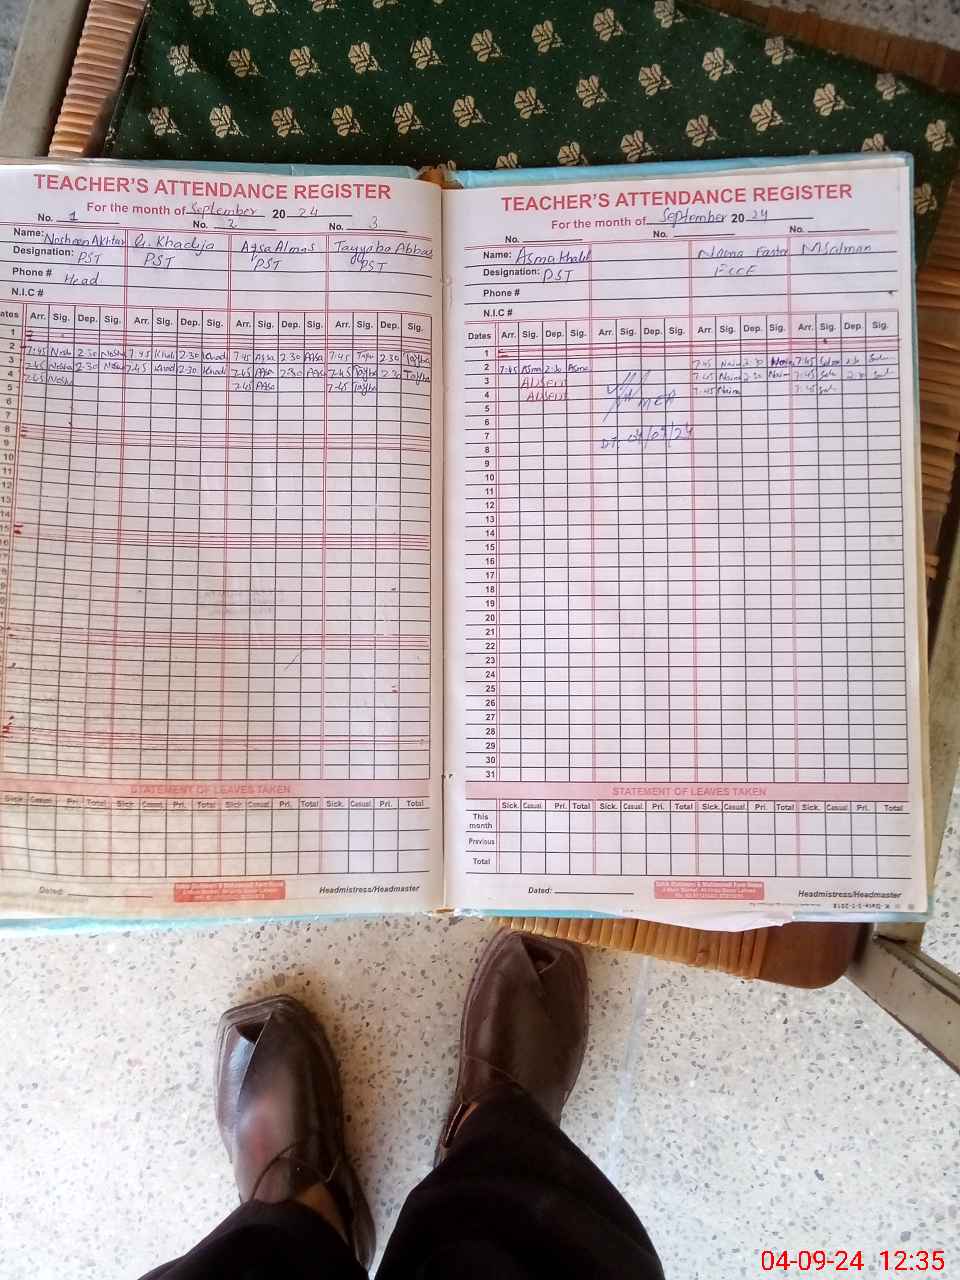 TEACHER'S ATTENDANCE REGISTER
For the month of September 2024
No. 1 No. 2 No. 3
Name: Nosheen Akhtar G. Khadija Aqsa Almas Tayyaba Abbas
Designation: PST PST PST PST
Phone # Head
N.I.C #
Dates Arr. Sig. Dep. Sig. Arr. Sig. Dep. Sig. Arr. Sig. Dep. Sig. Arr. Sig. Dep. Sig.
1
2 7:45 Nosh 2-30 Nosh 7:45 Khad 2-30 Khad 7-45 Aqsa 2-30 Aqsa 7-45 2-30 Tayba
3 7-45 Nosha 2-30 Nosh 7-45 Khad 2-30 Khadi 7-45 Aqsa 2-30 Aqsa 7-45 Tayba 2-30 Tayba
4 7-45 Nosha 7-45 Aqsa 7-45 Tayba
5
6
7
8
9
10
11
12
13
14
15
16
STATEMENT OF LEAVES TAKEN
Sick. Casual. Pri. Total Sick. Casual. Pri. Total Sick. Casual. Pri. Total Sick. Casual. Pri. Total
Dated: Headmistress/Headmaster
TEACHER'S ATTENDANCE REGISTER
For the month of September 2024
No. No. No.
Name: Asma Khalil M Salman
Designation: PST ECCE
Phone #
N.I.C #
Dates Arr. Sig. Dep. Sig. Arr. Sig. Dep. Sig. Arr. Sig. Dep. Sig. Arr. Sig. Dep. Sig.
1
2 7:45 Asma 2:30 Asma 7:45 Naim 2-30 Naim 7:45 Salm 2-30 Salm
3 ABSENT 7:45 Naim 2-30 Naim 7:45 Salm 2-30 Salm
4 ABSENT MEA 7:45 Naim 7:45 Salm
5
6
7 DT. 04/09/24
8
9
10
11
12
13
14
15
16
17
18
19
20
21
22
23
24
25
26
27
28
29
30
31
STATEMENT OF LEAVES TAKEN
Sick. Casual. Pri. Total Sick. Casual. Pri. Total Sick. Casual. Pri. Total Sick. Casual. Pri. Total
This month
Previous
Total
Dated: Headmistress/Headmaster
04-09-24 12:35